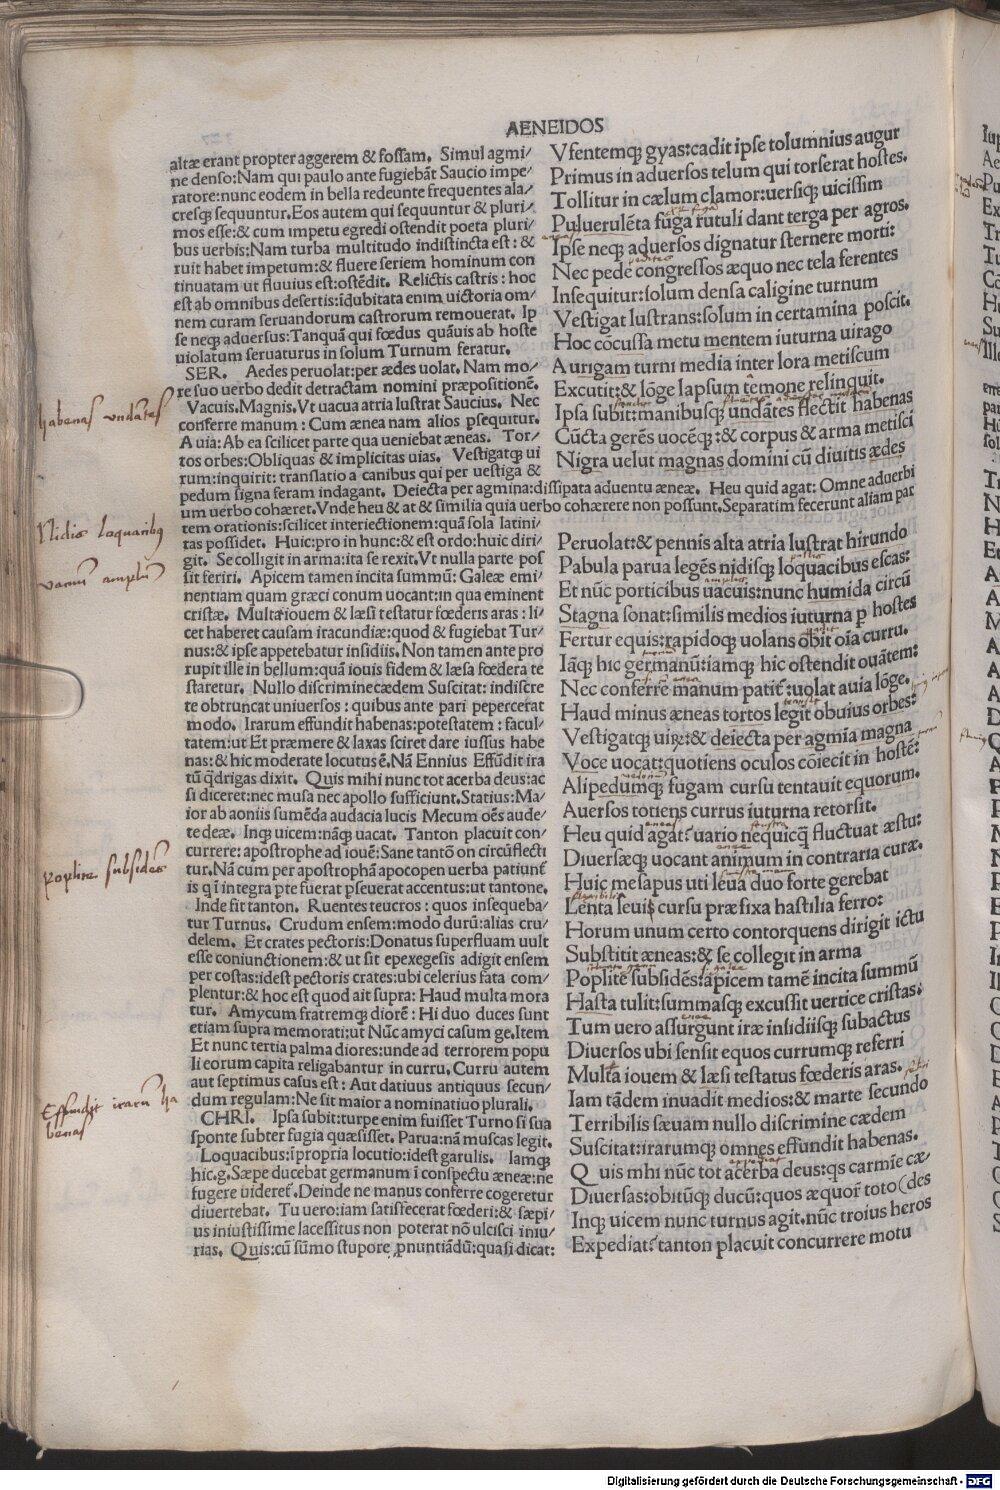 AENEIDOS
altæ erant propter aggerem & fossam. Simul agmi/
ne denso:Nam qui paulo ante fugiebāt Saucio impe/
ratore:nunc eodem in bella redeunte frequentes ala/
cresq; sequuntur.Eos autem qui sequuntur & pluri/
mos esse:& cum impetu egredi ostendit poeta pluri/
bus uerbis:Nam turba multitudo indistincta est: &
ruit habet impetum:& fluere seriem hominum con
tinuatam ut fluuius est:ostēdit. Relictis castris : hoc
est ab omnibus desertis:īdubitata enim uictoria om/
nem curam seruandorum castrorum remouerat. Ip
se neq; aduersus:Tanquā qui fœdus quāuis ab hoste
uiolatum seruaturus in solum Turnum feratur.
SER. Aedes peruolat:per ædes uolat. Nam mo/
re suo uerbo dedit detractam nomini præpositionē.
Vacuis.Magnis.Vt uacua atria lustrat Saucius. Nec
conferre manum : Cum ænea nam alios psequitur.
A uia: Ab ea scilicet parte qua ueniebat æneas. Tor/
tos orbes:Obliquas & implicitas uias. Vestigatq; ui
rum:inquirit: translatio a canibus qui per uestiga &
pedum signa feram indagant. Deiecta per agmina:dissipata aduentu æneæ. Heu quid agat: Omne aduerbi
um uerbo cohæret.Vnde heu & at & similia quia uerbo cohærere non possunt.Separatim fecerunt aliam par
tem orationis:scilicet interiectionem:quā sola latini/
tas possidet. Huic:pro in hunc:& est ordo:huic diri/
git. Se colligit in arma:ita se rexit.Vt nulla parte pos
sit feriri. Apicem tamen incita summū: Galeæ emi/
nentiam quam græci conum uocant:in qua eminent
cristæ. Multa iouem & læsi testatur fœderis aras : li/
cet haberet causam iracundiæ:quod & fugiebat Tur/
nus:& ipse appetebatur insidiis. Non tamen ante pro
rupit ille in bellum:quā iouis fidem & læsa fœdera te
staretur. Nullo discrimine cædem Suscitat: indiscre
te obtruncat uniuersos : quibus ante pari pepercerat
modo. Irarum effundit habenas:potestatem : facul/
tatem:ut Et præmere & laxas sciret dare iussus habe
nas:& hic moderate locutus ē.Nā Ennius Effūdit ira
tū q̄drigas dixit. Quis mihi nunc tot acerba deus:ac
si diceret:nec musa nec apollo sufficiunt.Statius:Ma/
ior ab aoniis sumēda audacia lucis Mecum oēs aude/
te deæ. Inq; uicem:nāq; uacat. Tanton placuit con/
currere: apostrophe ad iouē:Sane tantō on circūflecti
tur.Nā cum per apostrophā apocopen uerba patiunt̄
is q ī integra pte fuerat pseuerat accentus:ut tantone.
Inde fit tanton. Ruentes teucros : quos insequeba/
tur Turnus. Crudum ensem:modo durū:alias cru/
delem. Et crates pectoris:Donatus superfluam uult
esse coniunctionem:& ut sit epexegesis adigit ensem
per costas:idest pectoris crates:ubi celerius fata com/
plentur:& hoc est quod ait supra: Haud multa mora
tur. Amycum fratremq; diorē : Hi duo duces sunt
etiam supra memorati:ut Nūc amyci casum ge.Item
Et nunc tertia palma diores:unde ad terrorem popu
li eorum capita religabantur in curru. Curru autem
aut septimus casus est : Aut datiuus antiquus secun/
dum regulam:Ne sit maior a nominatiuo plurali.
CHRI. Ipsa subit:turpe enim fuisset Turno si sua
sponte subter fugia quæsisset. Parua:nā muscas legit.
Loquacibus:ī propria locutio:idest garulis. Iamq;
hic.g.Sæpe ducebat germanum ī conspectu æneæ:ne
fugere uideret̄.Deinde ne manus conferre cogeretur
diuertebat. Tu uero:iam satisfecerat fœderi:& sæpi/
us iniustissime lacessitus non poterat nō ulcisci iniu/
rias. Quis:cū sūmo stupore pnuntiādū:quasi dicat:
Vfentemq; gyas:cadit ipse tolumnius augur
Primus in aduersos telum qui torserat hostes.
Tollitur in cælum clamor:uersiq; uicissim
Puluerulēta fuga rutuli dant terga per agros.
Ipse neq; aduersos dignatur sternere morti:
Nec pede congressos æquo nec tela ferentes
Insequitur:solum densa caligine turnum
Vestigat lustrans:solum in certamina poscit.
Hoc cōcussa metu mentem iuturna uirago
Aurigam turni media inter lora metiscum
Excutit:& lōge lapsum temone relinquit.
Ipsa subit:manibusq; undātes flectit habenas
Cūcta gerēs uocēq; :& corpus & arma metisci
Nigra uelut magnas domini cū diuitis ædes
Peruolat:& pennis alta atria lustrat hirundo
Pabula parua legēs nidisq; loquacibus escas:
Et nūc porticibus uacuis:nunc humida circū
Stagna sonat:similis medios iuturna p hostes
Fertur equis:rapidoq; uolans obit oīa curru.
Iāq; hic germanū:iamq; hic ostendit ouātem:
Nec conferre manum patit̄:uolat auia lōge.
Haud minus æneas tortos legit obuius orbes:
Vestigatq; uiꝝ:& deiecta per agmīa magna
Voce uocat:quotiens oculos cōiecit in hostē:
Alipedumq; fugam cursu tentauit equorum.
Auersos totiens currus iuturna retorsit.
Heu quid agat? uario nequicq̄ fluctuat æstu:
Diuersæq; uocant animum in contraria curæ.
Huic mesapus uti leua duo forte gerebat
Lenta leuis cursu præfixa hastilia ferro:
Horum unum certo contorquens dirigit ictu
Substitit æneas:& se collegit in arma
Poplitē subsidēs:apicem tamē incita summū
Hasta tulit:summasq; excussit uertice cristas.
Tum uero assurgunt iræ insidiisq; subactus
Diuersos ubi sensit equos currumq; referri
Multa iouem & læsi testatus fœderis aras.
Iam tādem inuadit medios:& marte secundo
Terribilis sæuam nullo discrimine cædem
Suscitat:irarumq; omnes effundit habenas.
Quis mhi nūc tot acerba deus:qs carmīe cæ/
Diuersas:obitūq; ducū:quos æquor̄ toto (des
Inq; uicem nunc turnus agit.nūc troius heros
Expediat? tanton placuit concurrere motu
habenas undātes
Nidis loquacibus
vacuis amplis
poplite subsidēs
Effundit irarū ha
benas
Digitalisierung gefördert durch die Deutsche Forschungsgemeinschaft - DFG